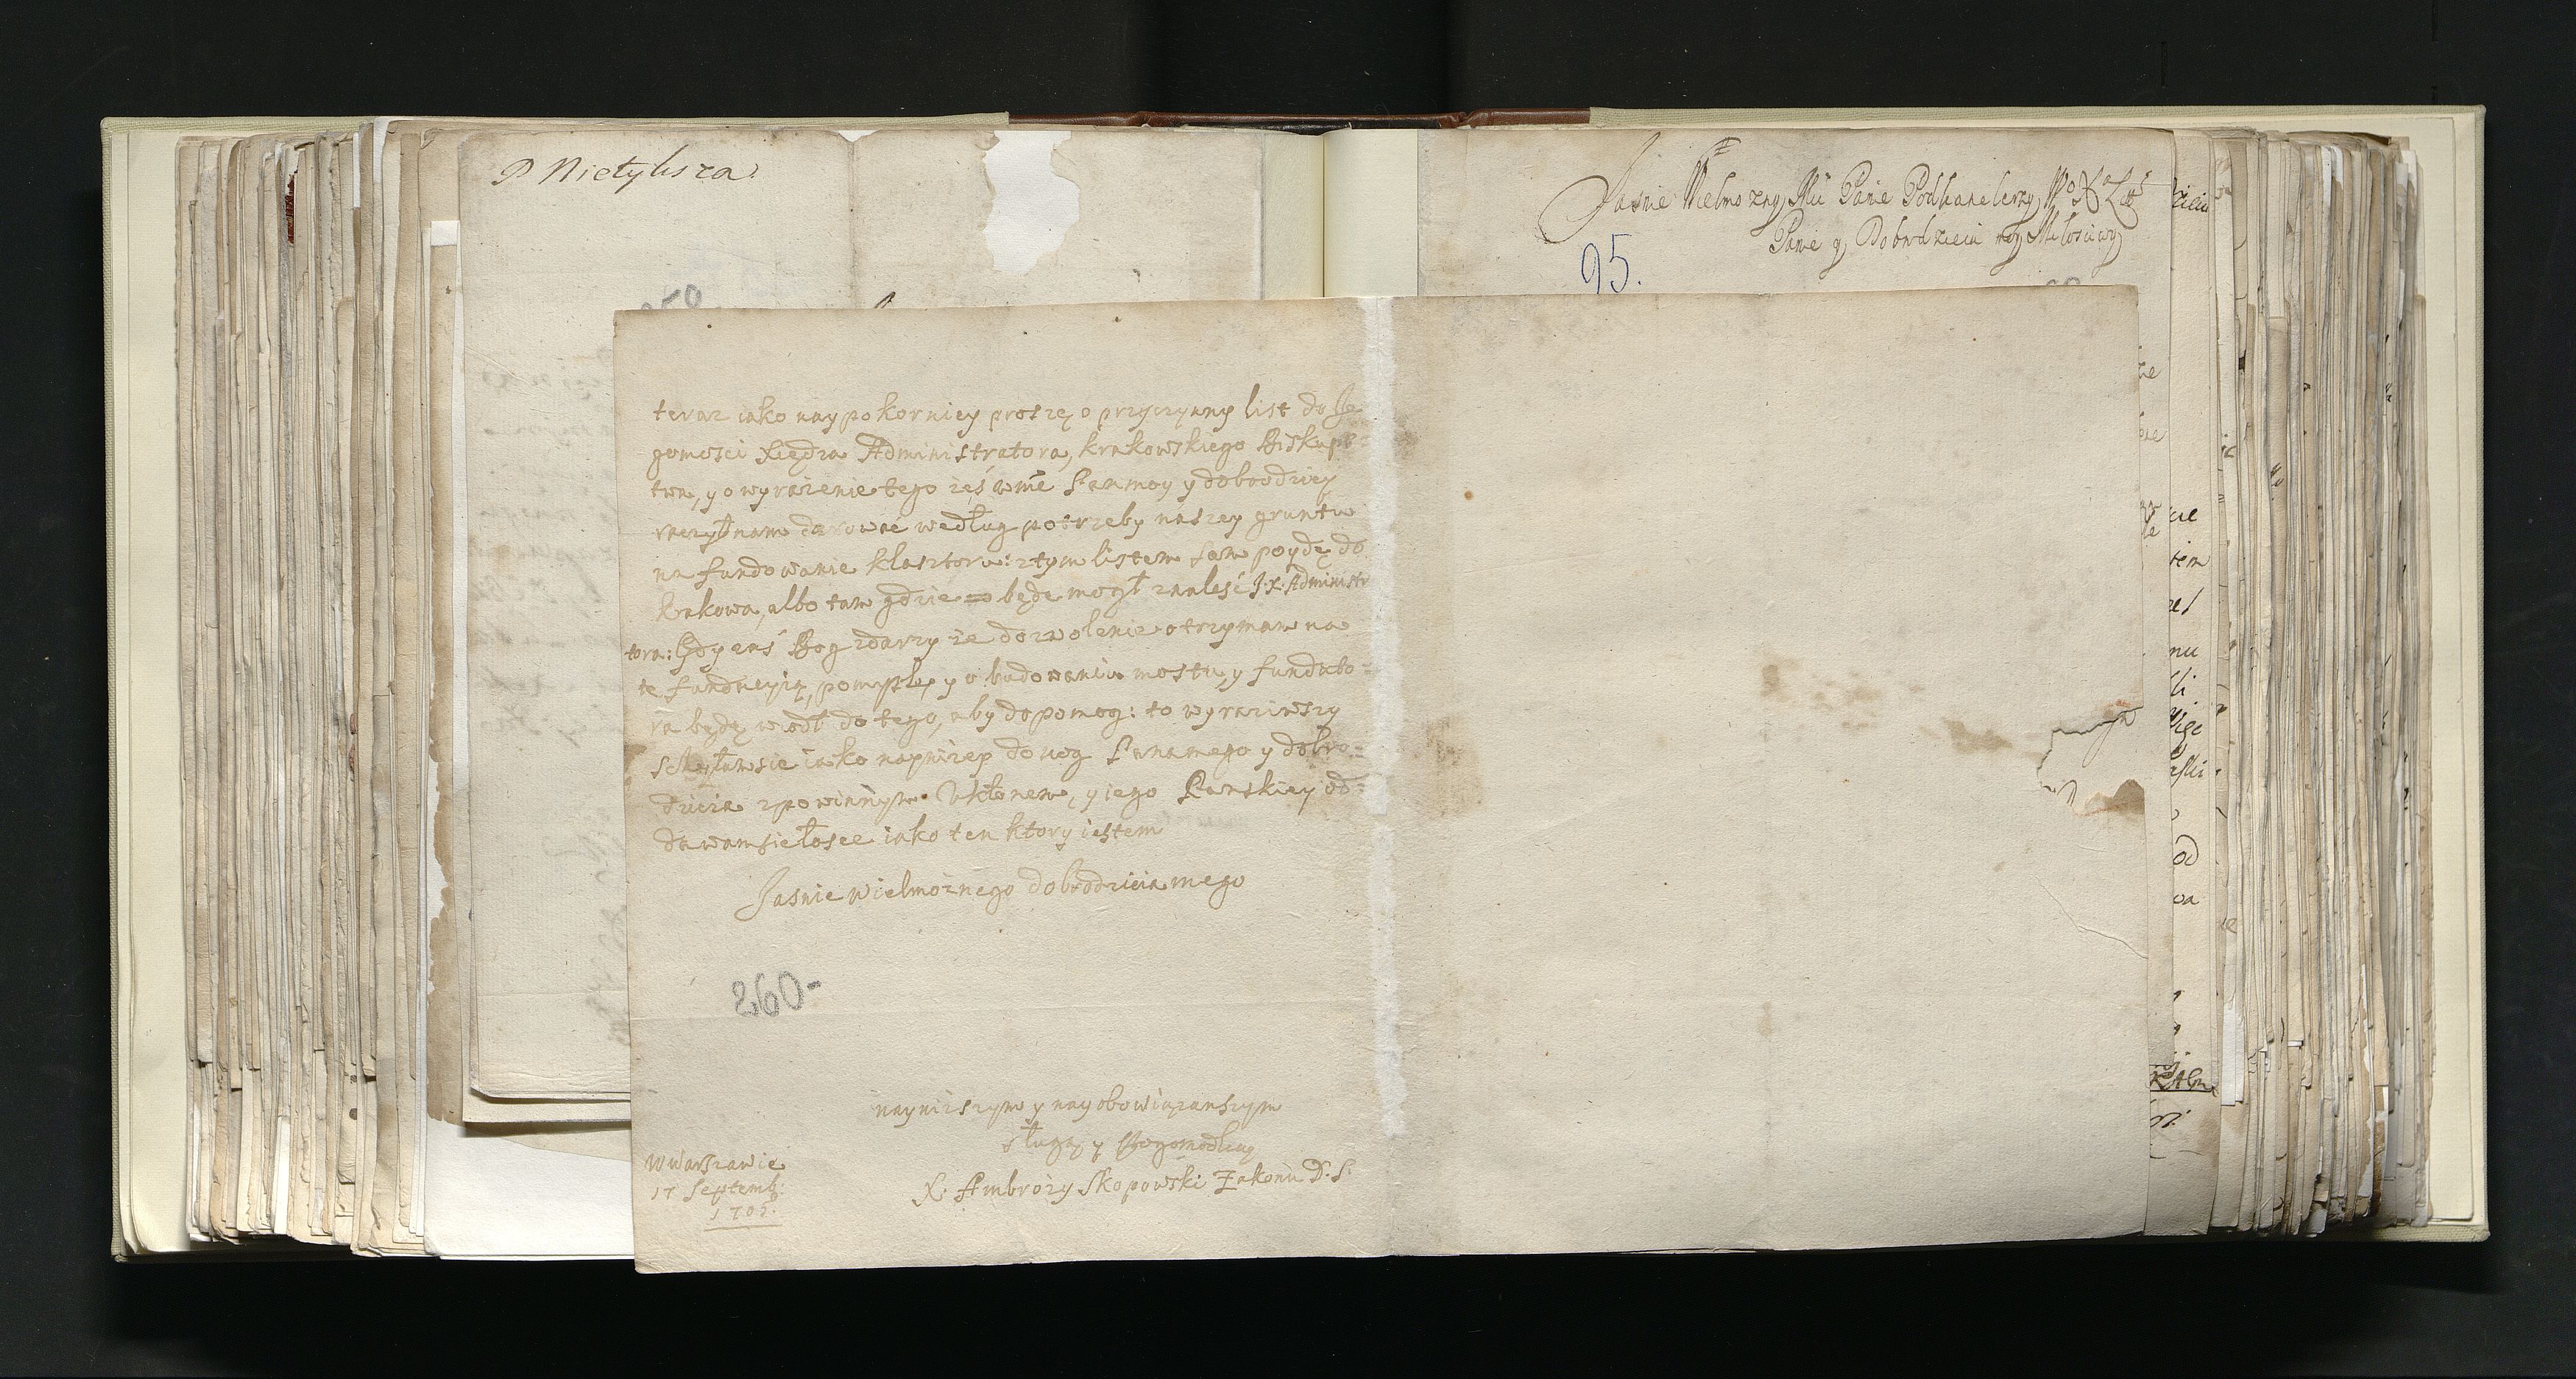 P Nietyksza
Jasnie Wielmozny Mci Panie Podkanclerzy W° X° Litt°
Panie y Dobrodzieiu moy Miłosciwy
95.
teraz iako naypokorniey proszę o przyczynny list do Je
gomosci Xiędza Administratora, krakowskiego Biskups=
twa, y o wyrazenie tego żeś wme Pan moy y dobrodziey
raczył nam darować według potrzeby naszey gruntu
na fundowanie klasztoru: z tym listem sam poydę do
krakowa, albo tam gdzie będę mogł znalesć J.X. Administr
tora: Gdy zaś Bog zdarzy że dozwolenie otrzymam na
te fundacyią, pomyslę y o budowaniu mostu, y fundato=
ra będę wiodł do tego, aby dopomog: to wyraziwszy
schylam sie iako nayniżey do nog Pana mego y dobro=
dzieia z powinnym Ukłonem, y iego Panskiey od=
dawam sie łasce iako ten ktory iestem
Jasnie wielmożnego dobrodzieia mego
260-
nayniższym y nayobowiązanszym
sługą y Bogomodlcą
X. Ambrozy Skopowski Zakonu D. S.
w Warszawie
17 Septemb:
1702.